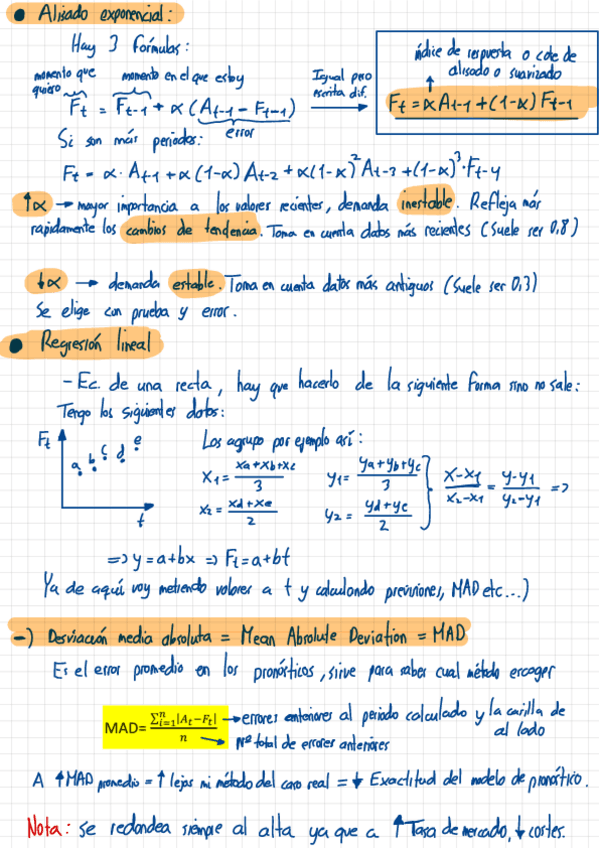 ● Alisado exponencial:
Hay 3 fórmulas:
momento que quiero
momento en el que estoy
F_t = F_t-1 + α (A_t-1 - F_t-1)
error
Igual pero escrita dif.
índice de respuesta o cote de alisado o suavizado
F_t = α A_t-1 + (1-α) F_t-1
Si son más periodos:
F_t = α · A_t-1 + α (1-α) A_t-2 + α(1-α)² A_t-3 + (1-α)³ · F_t-4
↑α → mayor importancia a los valores recientes, demanda inestable. Refleja más
rapidamente los cambios de tendencia. Toma en cuenta datos más recientes (Suele ser 0,8)
↓α → demanda estable. Toma en cuenta datos más antiguos (Suele ser 0,3)
Se elige con prueba y error.
● Regresión lineal
- Ec. de una recta, hay que hacerlo de la siguiente forma sino no sale:
Tengo los siguientes datos:
F_t
a b c d e
t
Los agrupo por ejemplo así:
x_1 = (x_a + x_b + x_c)/3
y_1 = (y_a + y_b + y_c)/3
x_2 = (x_d + x_e)/2
y_2 = (y_d + y_c)/2
(x - x_1)/(x_2 - x_1) = (y - y_1)/(y_2 - y_1) =>
=> y = a + bx => F_t = a + bt
Ya de aquí voy metiendo valores a t y calculando previsiones, MAD etc...)
-) Desviación media absoluta = Mean Absolute Deviation = MAD
Es el error promedio en los pronósticos, sirve para saber cual método escoger
MAD= ∑_{i=1}^{n}|A_t-F_t| / n
→ errores anteriores al periodo calculado y la casilla de al lado
→ Nº total de errores anteriores
A ↑MAD promedio = ↑ lejos mi método del caso real = ↓ Exactitud del modelo de pronóstico.
Nota: se redondea siempre al alta ya que a ↑ Tasa de mercado, ↓ costes.